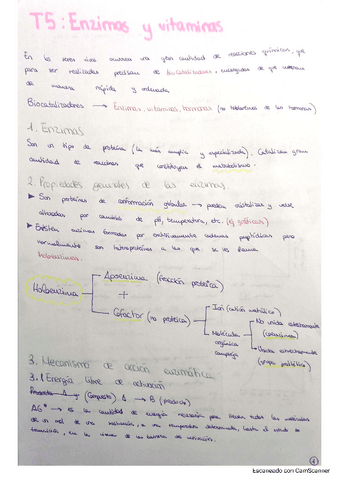 T5: Enzimas y vitaminas
En los seres vivos ocurren una gran cantidad de reacciones químicas, que
para ser realizadas precisan de biocatalizadores, encargados de que ocurran
de manera rápida y ordenada.
Biocatalizadores → Enzimas, vitaminas, hormonas (no hablaremos de las hormonas)
1. Enzimas
Son un tipo de proteína (la más amplia y especializada). Catalizan gran
cantidad de reacciones que constituyen el metabolismo.
2. Propiedades generales de las enzimas.
Son proteínas de conformación globular → pueden cristalizar y verse
alteradas por cambios de pH, temperatura, etc.
Existen enzimas formadas por exclusivamente cadenas peptídicas pero
normalmente son heteroproteínas a las que se les llama
holoenzimas.
Holoenzima
Apoenzima (fracción proteica)
+
Cofactor (no proteica)
Ion (catión metálico)
Molécula orgánica compleja
No unida covalentemente
(coenzimas)
Unida covalentemente
(grupo prostético)
3. Mecanismo de acción enzimática
3.1 Energía libre de activación
A → B (producto)
AG* → es la cantidad de energía necesaria para llevar todas las moléculas
de un mol de una sustancia, a una temperatura determinada, hasta el estado de
transición, en la cima de una barrera de activación.
1
Escaneado con CamScanner